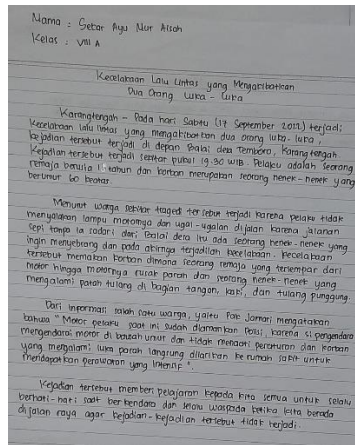 Nama : Sekar Ayu Nur Aisah
Kelas : VIII A
Kecelakaan Lalu Lintas yang Mengakibatkan
Dua Orang Luka - Luka
Karangtengah - Pada hari Sabtu (17 September 2022) terjadi
kecelakaan lalu lintas yang mengakibatkan dua orang luka-luka,
kejadian tersebut terjadi di depan Balai desa Temboro, Karangtengah.
Kejadian tersebut terjadi sekitar pukul 19.30 WIB. Pelaku adalah seorang
remaja berusia tahun dan korban merupakan seorang nenek-nenek yang
berumur 60 keatas.
Menurut warga sekitar tragedi tersebut terjadi karena pelaku tidak
menyalakan lampu motornya dan ugal-ugalan dijalan karena jalanan
sepi tanpa ia sadari dari Balai desa itu ada seorang nenek-nenek yang
ingin menyebrang dan pada akhirnya terjadilah kecelakaan. Kecelakaan
tersebut memakan korban dimana seorang remaja yang terlempar dari
motor hingga motornya rusak parah dan seorang nenek-nenek yang
mengalami patah tulang di bagian tangan, kaki, dan tulang punggung.
Dari informasi salah satu warga, yaitu Pak Jamari mengatakan
bahwa "Motor pelaku saat ini sudah diamankan Polisi karena si pengendara
mengendarai motor di bawah umur dan tidak menaati peraturan dan korban
yang mengalami luka parah langsung dilarikan ke rumah sakit untuk
mendapatkan perawatan yang intensif".
Kejadian tersebut memberi pelajaran kepada kita semua untuk selalu
berhati-hati saat berkendara dan selalu waspada ketika kita berada
di jalan raya agar kejadian-kejadian tersebut tidak terjadi.